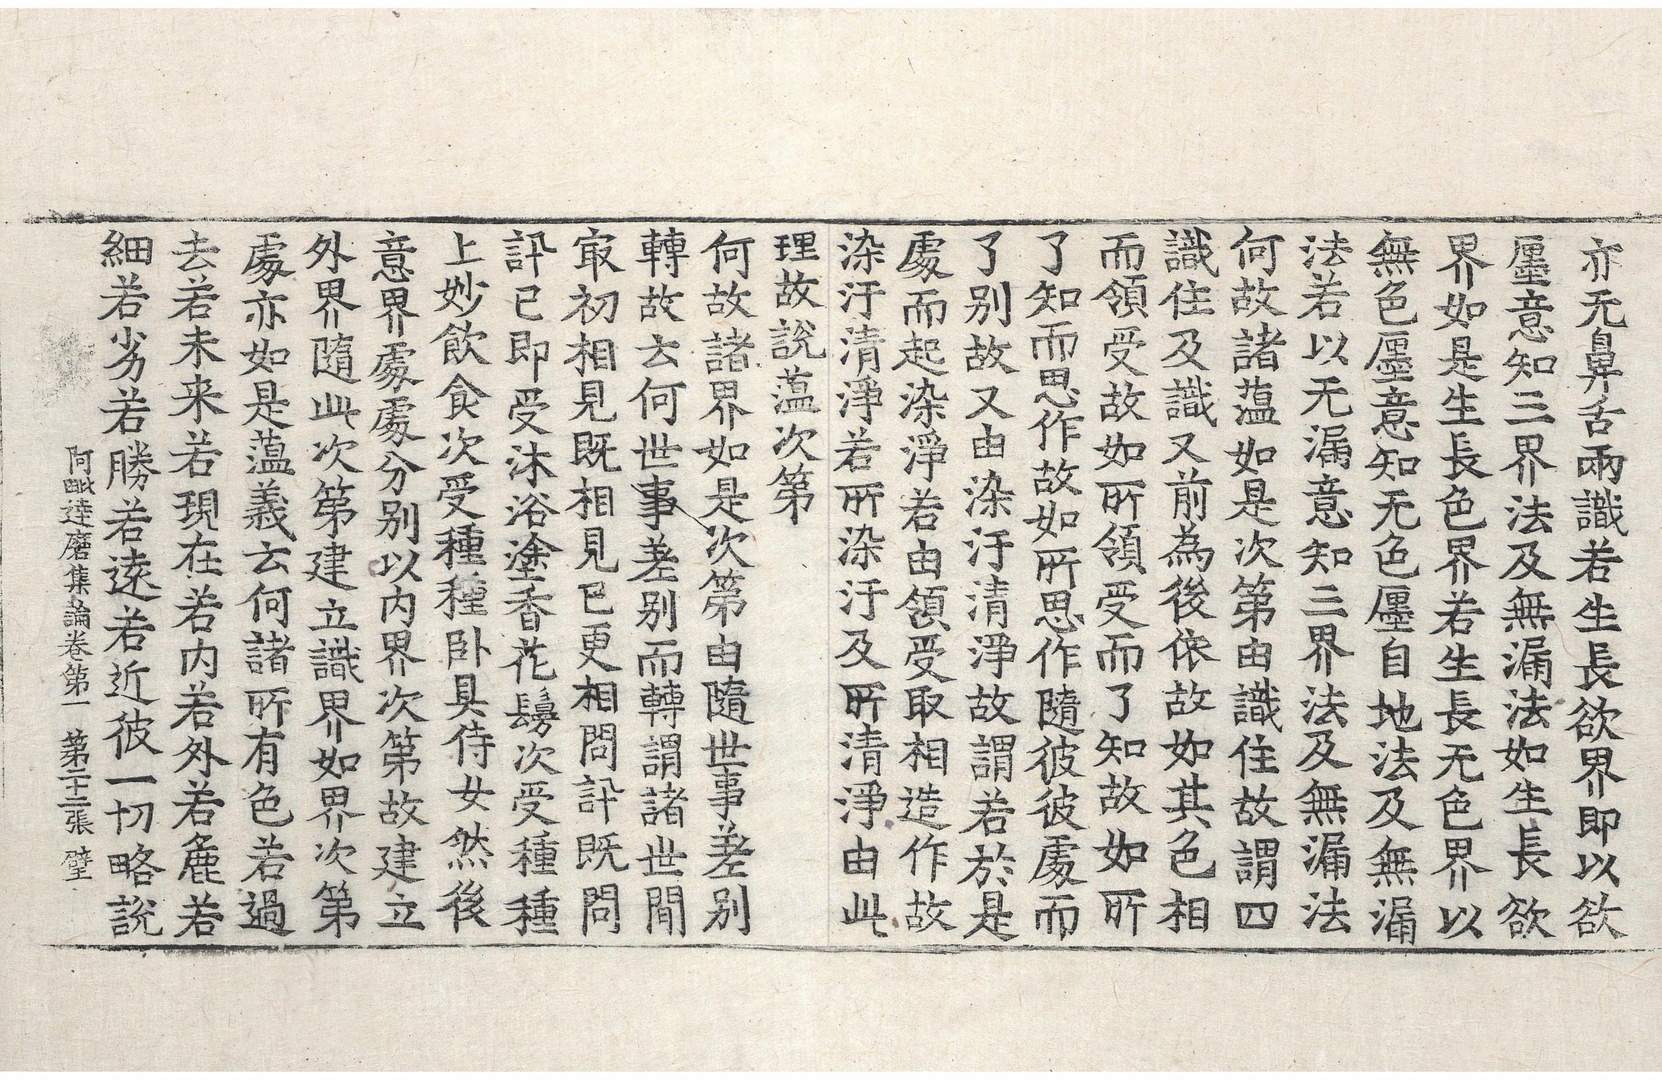 亦无鼻舌兩識若生長欲界即以欲
㕓意知三界法及無漏法如生長欲
界如是生長色界若生長无色界以
無色㕓意知无色㕓自地法及無漏
法若以无漏意知三界法及無漏法
何故諸蕰如是次第由識住故謂四
識住及識又前為後依故如其色相
而領受故如所領受而了知故如所
了知而思作故如所思作隨彼彼處而
了别故又由染汙清淨故謂若於是
處而起染淨若由領受取相造作故
染汙清淨若所染汙及所清淨由此
理故說蕰次第
何故諸界如是次第由隨世事差别
轉故云何世事差别而轉謂諸世間
㝡初相見既相見已更相問訃既問
訃已即受沐浴塗香花鬘次受種種
上妙飲食次受種種卧具侍女然後
意界處處分别以内界次第故建立
外界隨此次第建立識界如界次第
處亦如是蕰義云何諸所有色若過
去若未来若現在若内若外若麁若
細若劣若勝若遠若近彼一切略說
阿毗達磨集論卷第一　第二十二張　璧